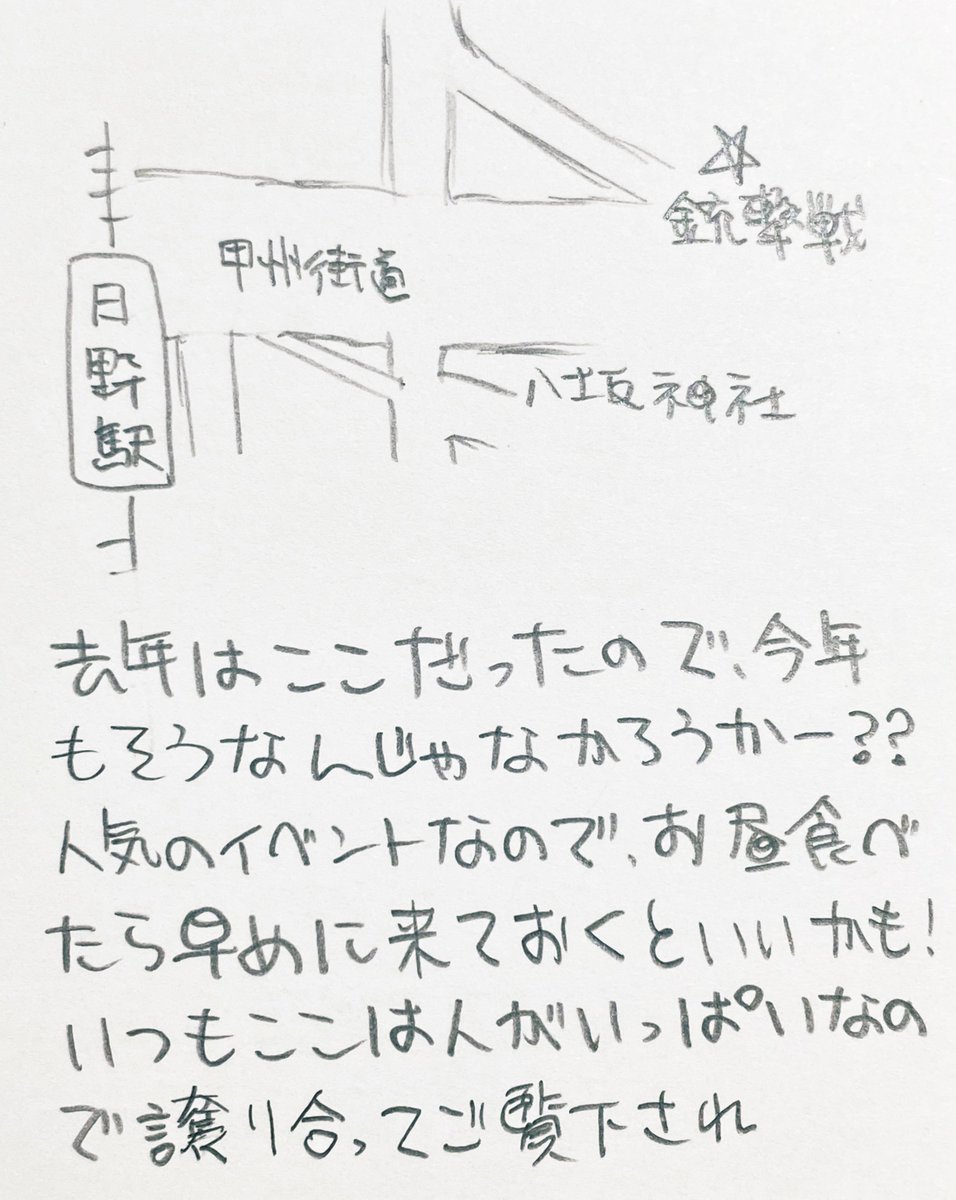 銃撃戦
甲州街道
日野駅
八坂神社
去年はここだったので、今年
もそうなんじゃなかろうかー??
人気のイベントなので、お昼食べ
たら早めに来ておくといいかも!
いつもここは人がいっぱいなの
で譲り合ってご覧下され